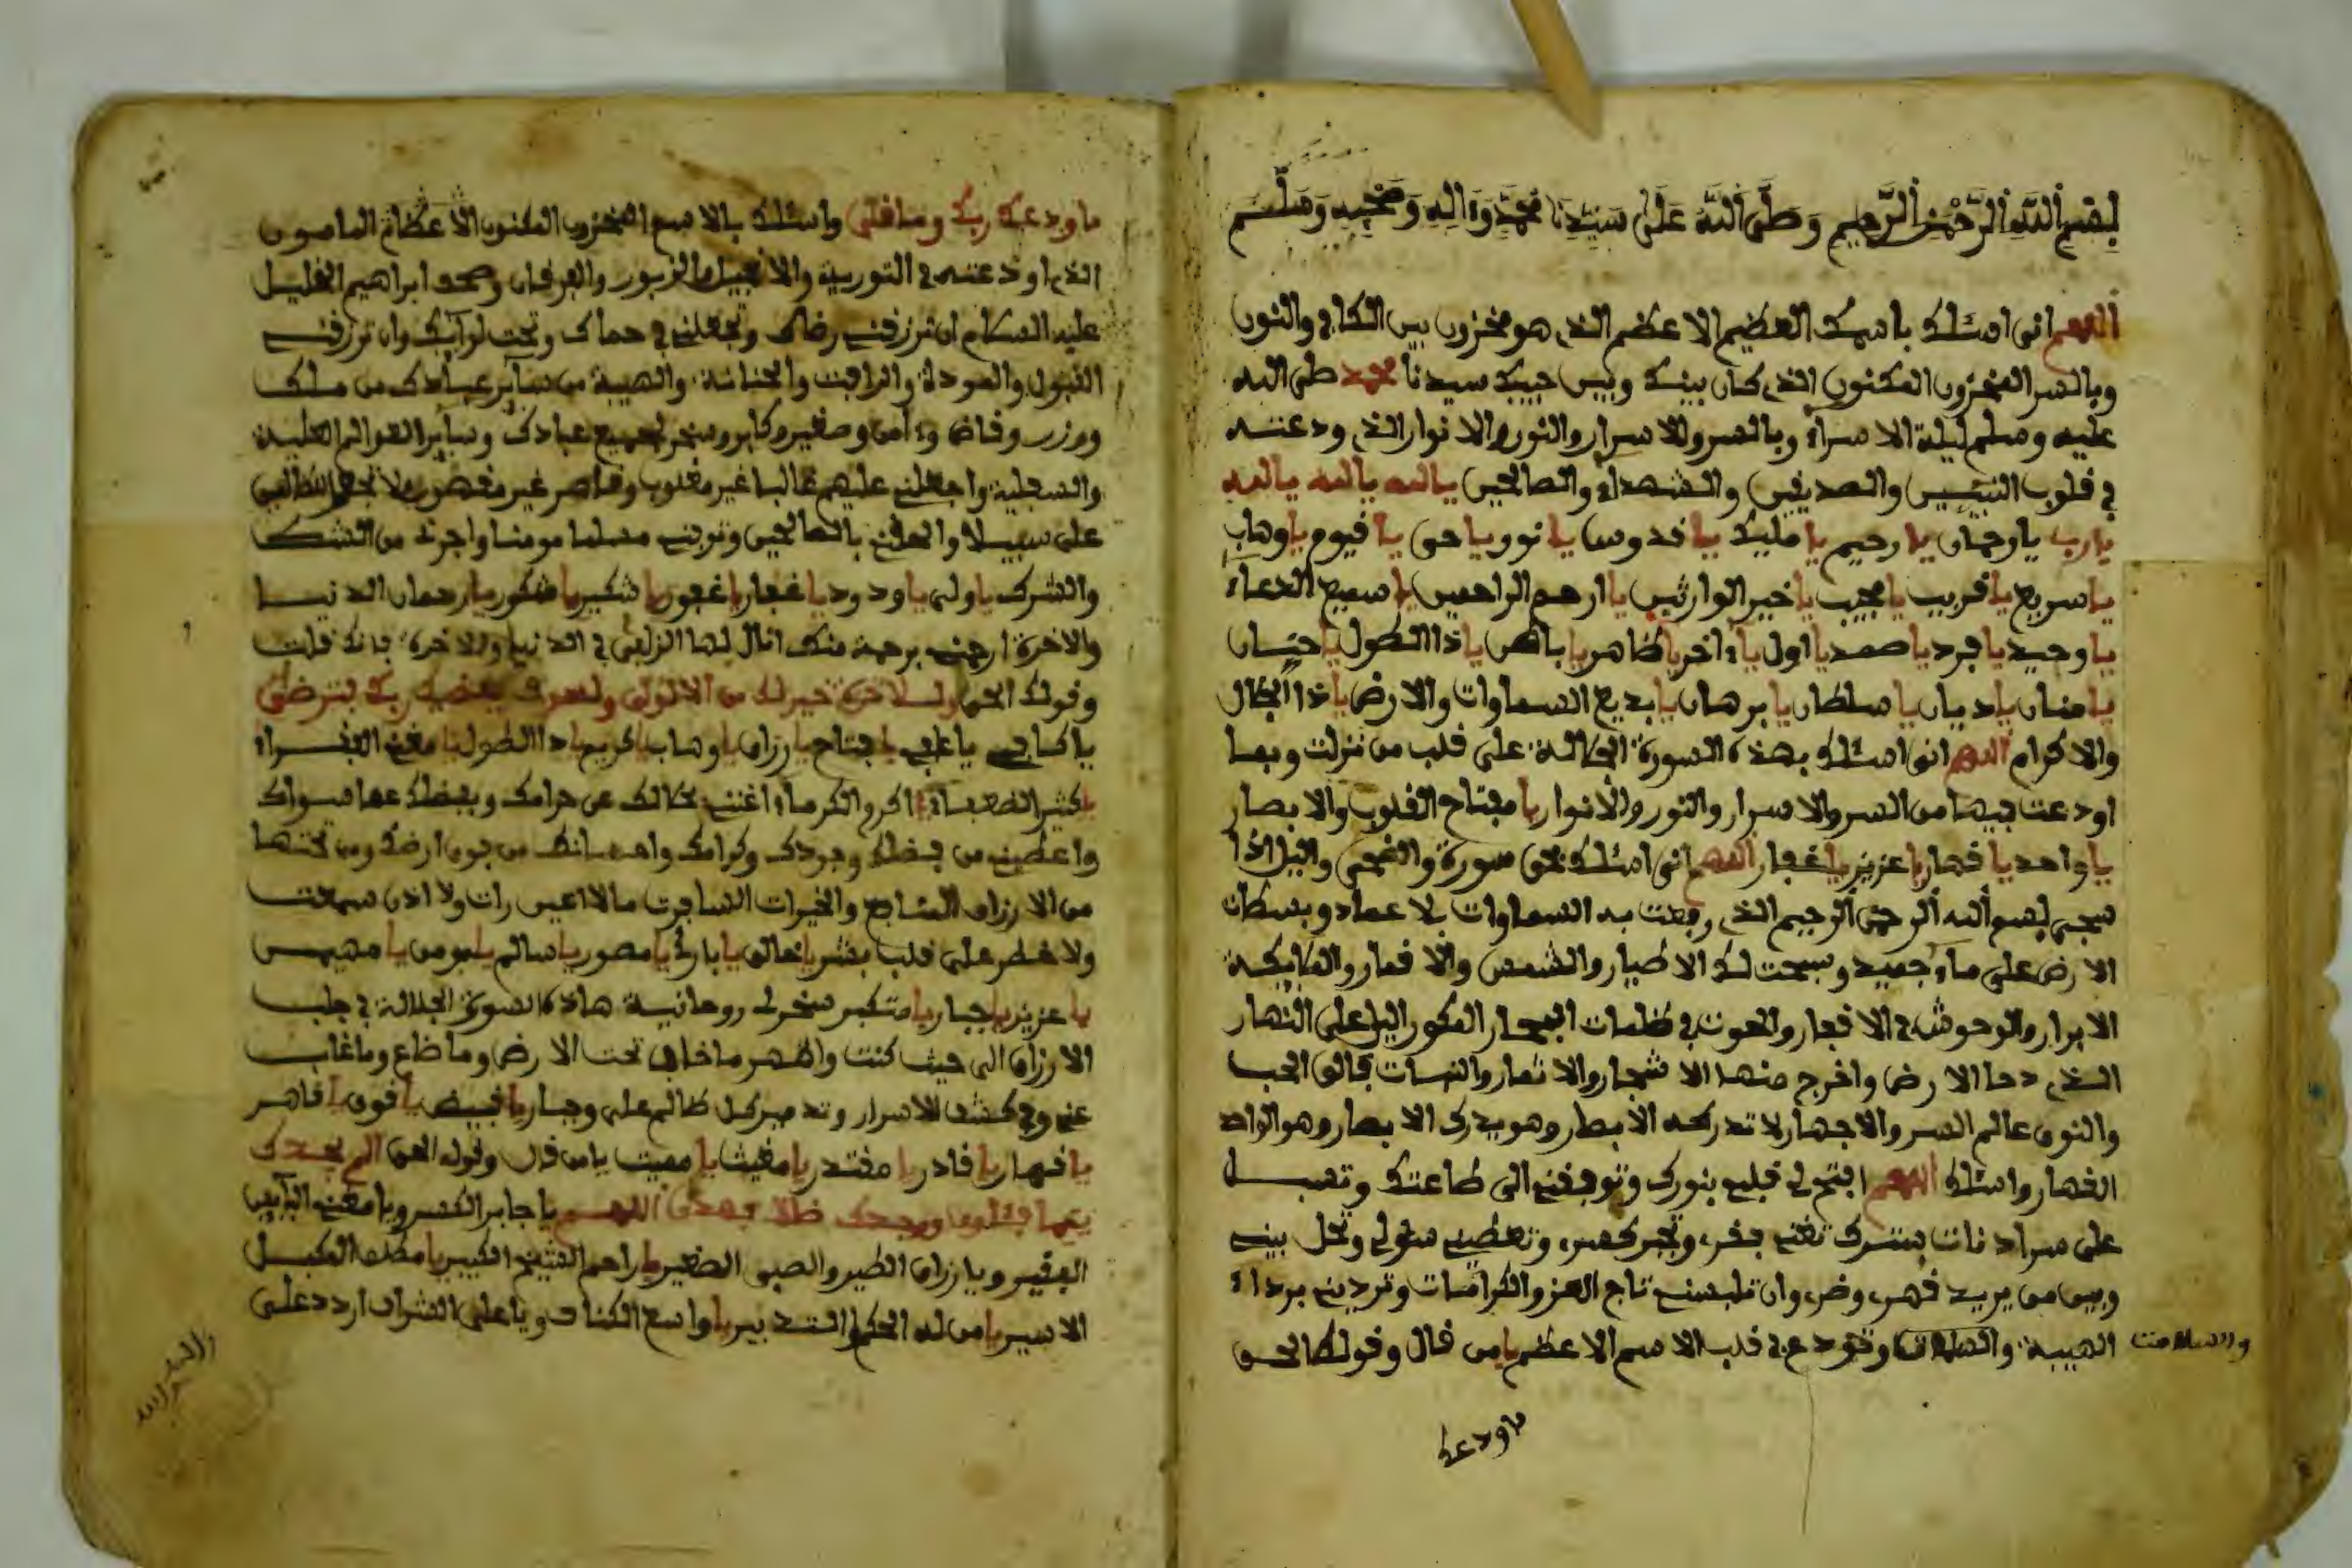 بسم الله الرحمن الرحيم وصلى الله على سيدنا محمد وءاله وصحبه وسلم
اللهم انى اسئلك باسمك العظيم الاعظم الذى هو مخزون بين الكاف والنون
وبالسر المخزون المكنون الذى كان بينك وبين حبيبك سيدنا محمد صلى الله
عليه وسلم ليلة الاسراء وبالسر والاسرار والنور والانوار الذى ودعته
فى قلوب النبيئين والصديقين والشهداء والصالحين يالله يالله يالله يالله
يارب يارحمان يا رحيم يا مليك يا قدوس يا نور يا حى يا قيوم يا وهاب
يا سريع يا قريب يا مجيب يا خير الوارثين يا ارحم الراحمين يا سميع الدعاء
يا وحيد يا فرد يا صمد يا اول يا ءاخر يا ظاهر يا باطن يا ذا الطول يا حنان
يا منان يا ديان يا سلطان يا برهان يا بديع السماوات والارض يا ذا الجلال
والاكرام اللهم انى اسئلك بهذه السورة الجلالة على قلب من نزلت وبما
اودعت فيها من السر والاسرار والنور والانوار يا مفتاح القلوب والابصار
يا واحد يا قهار يا عزيز يا غفار اللهم انى اسئلك بحق سورة والضحى واليل اذا
سجى بسم الله الرحمن الرحيم الذى رفعت به السماوات بلا عماد وبسطت
الارض على ماء جميد وسبحت لك الاطيار والشمس والاقمار والملايكة
الابرار والوحوش فى الاقفار والحوت فى ظلمات البحار المكور اليل على النهار
الذى دحا الارض واخرج منها الاشجار والاثمار والنبات فالق الحب
والنوى عالم السر والاجهار لا تدركه الابصار وهو يدرك الابصار وهو الواحد
القهار واسئلك اللهم افتح لى قلبى بنورك وتوفقنى الى طاعتك وتسبل
على سرادقات بسترك تغنى فقرى وتجبر كسرى وتعطينى سؤلى وتحل بينى
وبين من يريد قهرى وضرى وان تلبسنى تاج العز والكرامات وتردينى برداء
الهيبة والسلامت وتودع فى قلب الاسم الاعظم يا من قال وقولك الحق
والسلامت
ما ودعك
ما ودعك ربك وما قلى واسئلك بالاسم المخزون المكنون الاعظام المامون
الذى اودعته فى التورية والانجيل والزبور والفرقان وصحف ابراهيم الخليل
عليه السلام ان ترزقنى رضاك وتجعلنى فى حماك وتحت لوآيك وان ترزقنى
القبول والمودة والرافت والحنانة والهيبة من سآير عبادك من ملك
ووزير وقاض وءامر وصغير وكابر وسخر لى جميع عبادك وسآير العوالم العلية
والسفلية واجعلنى عليهم غالبا غير مغلوب وقاصر غير مقصور ولا تجعل للظالمين
على سبيلا والحقنى بالصالحين وتوفنى مسلما مومنا واجرنى من الشك
والشرك يا ولى يا ودود يا غفار يا غفور يا شكير يا شكور يا رحمان الدنيا
والاخرة ارحمنى برحمة منك انال بها الزلفى فى الدنيا والاخرة فانك قلت
وقولك الحق وللاخرة خير لك من الاولى ولسوف يعطيك ربك فترضى
يا كافى يا غنى يا فتاح يا رزاق يا وهاب يا كريم يا ذا الطول يا مغنى الفقراء
يا كثير الضعفاء يا اكرم الكرماء اغننى بحلالك عن حرامك وبفضلك عما سواك
واعطينى من فضلك وجودك وكرامك واحسانك من فوق ارضك ومن تحتها
من الارزاق السابع والخيرات السابرت ما لا اعين رات ولا اذن سمعت
ولا خطر على قلب بشر يا خالق يا بارئ يا مصور يا سالم يا مومن يا مهيمن
يا عزيز يا جبار يا متكبر سخر لى روحانية هاذه السورة الجلالة فى جلب
الارزاق الى حيث كنت واظهر ما خافى تحت الارض وما ضاع وما غاب
عنى وفى كشف الاسرار وتدمير كل ظالم على وجبار يا قبيض يا قوى يا قاهر
يا قهار يا قادر يا مقتدر يا مغيث يا مقيت يا من قال وقوله الحق الم يجدك
يتيما فئاوى ووجدك ضالا فهدى اللهم يا جابر الكسر ويا مغنى البآيس
الفقير ويا رزاق الطير والصبى الصغير يا راحم الشيخ الكبير يا مطلق المكبل
الاسير يا من له الحكم والتدبير يا واسع الكناف ويا على الشراف اردد على